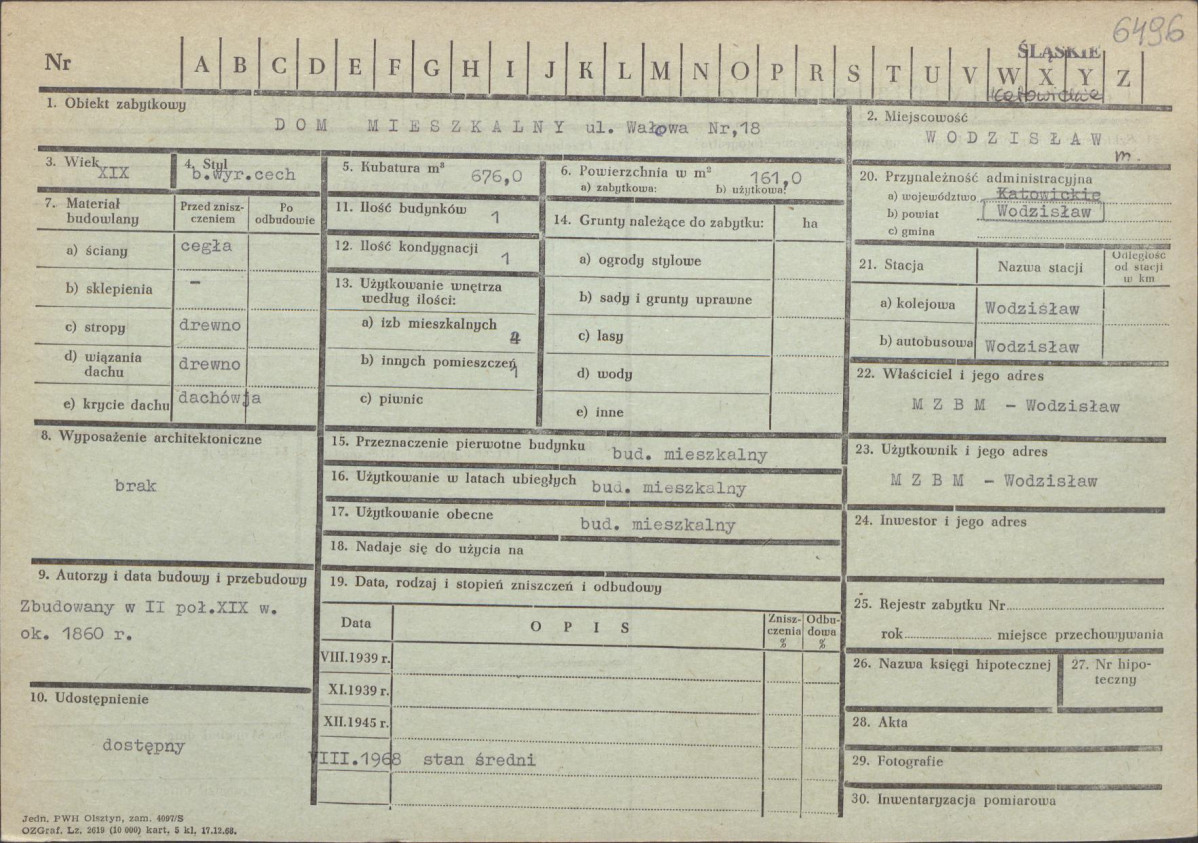 6496
ŚLĄSKIE
Nr A B C D E F G H I J K L M N O P R S T U V W X Y Z
Katowickie
1. Obiekt zabytkowy
DOM MIESZKALNY ul. Wałowa Nr,18
2. Miejscowość
WODZISŁAW
m.
3. Wiek
XIX
4. Styl
b.wyr.cech
5. Kubatura m³
676,0
6. Powierzchnia w m²
161,0
a) zabytkowa: b) użytkowa:
20. Przynależność administracyjna
a) województwo Katowickie
b) powiat Wodzisław
c) gmina
7. Materiał budowlany
Przed zniszczeniem
Po odbudowie
a) ściany cegła
b) sklepienia –
c) stropy drewno
d) wiązania dachu drewno
e) krycie dachu dachówja
11. Ilość budynków
1
12. Ilość kondygnacji
1
13. Użytkowanie wnętrza według ilości:
a) izb mieszkalnych
b) innych pomieszczeń
1
c) piwnic
14. Grunty należące do zabytku: ha
a) ogrody stylowe
b) sady i grunty uprawne
c) lasy
d) wody
e) inne
21. Stacja
Nazwa stacji
Odległość od stacji w km
a) kolejowa Wodzisław
b) autobusowa Wodzisław
22. Właściciel i jego adres
M Z B M – Wodzisław
8. Wyposażenie architektoniczne
brak
15. Przeznaczenie pierwotne budynku bud. mieszkalny
16. Użytkowanie w latach ubiegłych bud. mieszkalny
17. Użytkowanie obecne bud. mieszkalny
18. Nadaje się do użycia na
23. Użytkownik i jego adres
M Z B M – Wodzisław
24. Inwestor i jego adres
9. Autorzy i data budowy i przebudowy
Zbudowany w II poł.XIX w.
ok. 1860 r.
19. Data, rodzaj i stopień zniszczeń i odbudowy
Data
O P I S
Zniszczenia %
Odbudowa %
VIII.1939 r.
XI.1939 r.
XII.1945 r.
VIII.1968 stan średni
25. Rejestr zabytku Nr
rok miejsce przechowywania
26. Nazwa księgi hipotecznej
27. Nr hipoteczny
28. Akta
29. Fotografie
30. Inwentaryzacja pomiarowa
10. Udostępnienie
dostępny
Jedn. PWH Olsztyn, zam. 4097/S
OZGraf. Lz. 2619 (10 000) kart. 5 kl. 17.12.68.